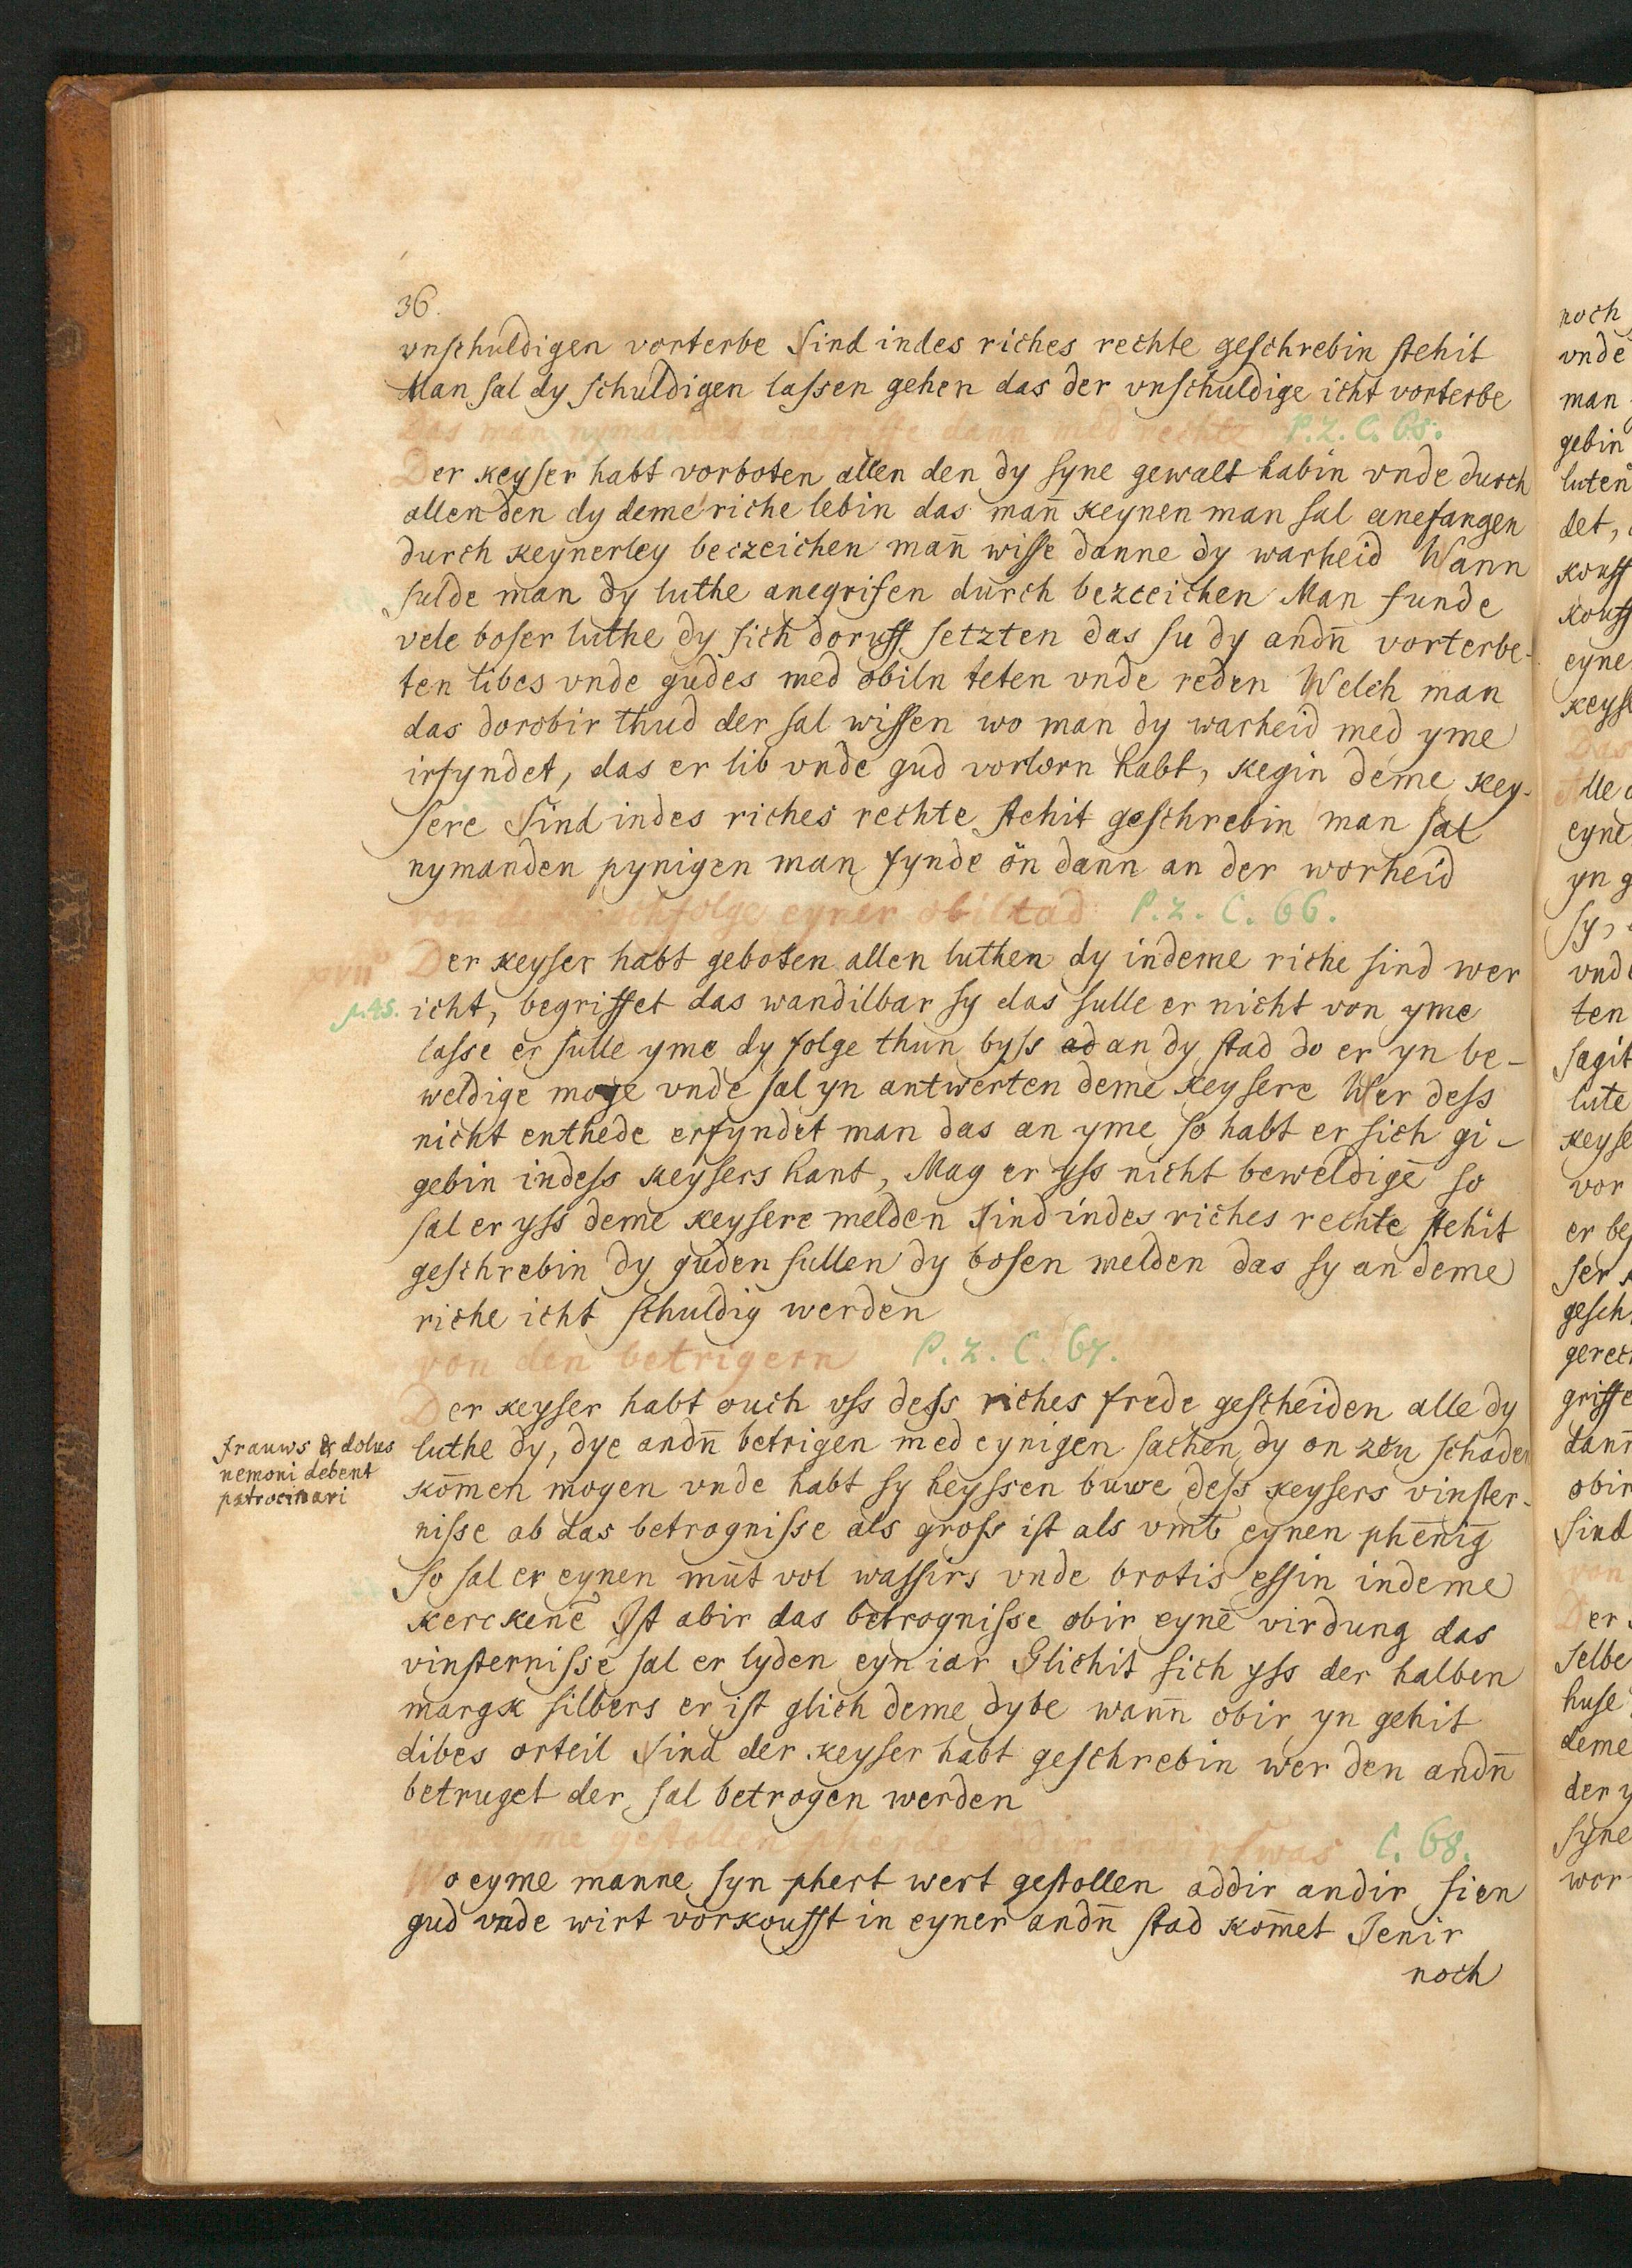 36.
vnschuldigen vorterbe Sind indes riches rechte geschrebin stehit
Man sal dy schuldigen lassen gehen das der vnschuldige icht vorterbe
Das man nymanden anegrife dann med rechte P. 2. C. 65.
Der keyser habt vorboten allen den dy syne gewalt habin vnde durch
allen den dy deme riche lebin das man̄ keynen man sal anefangen
durch keynerley beczeichen man̄ wisse danne dy warheid Wann
sulde man dy luthe anegrifen durch bezceichen Man funde
vele boser luthe dy sich doruff setzten das su dy andn̄ vorterbe-
ten libes vnde gudes med obiln teten vnde reden Welch man
das dorobir thud der sal wissen wo man dy warheid med yme
irfyndet, das er lib vnde gud vorlorn habt, kegin deme key-
sere Sind indes riches rechte stehit geschrebin man sal
nymanden pynigen man fynde ön dann an der worheid
von der nochfolge eyner obiltad P. 2. C. 66.
Der keyser habt geboten allen luthen dy indeme riche sind wer
p. 45. icht, begriffet das wandilbar sy das sulle er nicht von yme
lasse er sulle yme dy folge thun byss ad an dy stad do er yn be-
weldige moge vnde sal yn antwerten deme keysere Wer dess
nicht enthede erfyndet man das an yme so habt er sich gi-
gebin indess keysers hant, Mag er yss nicht beweldigē so
sal er yss deme keysere melden Sind indes riches rechte stehit
geschrebin dy guden sullen dy bosen melden das sy an deme
riche icht schuldig werden
von den betrigern P. 2. C. 67.
Der keyser habt ouch vss dess riches frede gescheiden alle dy
frauws & dolus
nemoni debent
patrocinari
luthe dy, dye andn̄ betrigen med eynigen sachen dy on zcu schaden
kom̄en mogen vnde habt sy heyssen buwe dess keysers vinster-
nisse ab das betrognisse als gross ist als vmb eynen phēnīg
so sal er eynen mūt vol wassirs vnde brotis essin indeme
kerckenē Ist abir das betrognisse obir eynē virdung das
vinsternisse sal er lyden eyn iar Glichit sich yss der halben
margk silbers er ist glich deme dybe wann̄ obir yn gehit
dibes orteil Sind der keyser habt geschrebin wer den andn̄
betruget der sal betrogen werden
eyme gestollen C. 68.
Wo eyme manne syn phert wert gestollen addir andir sien
gud vnde wirt vorkoufft in eyner andn̄ stad kom̄et Jenir
noch